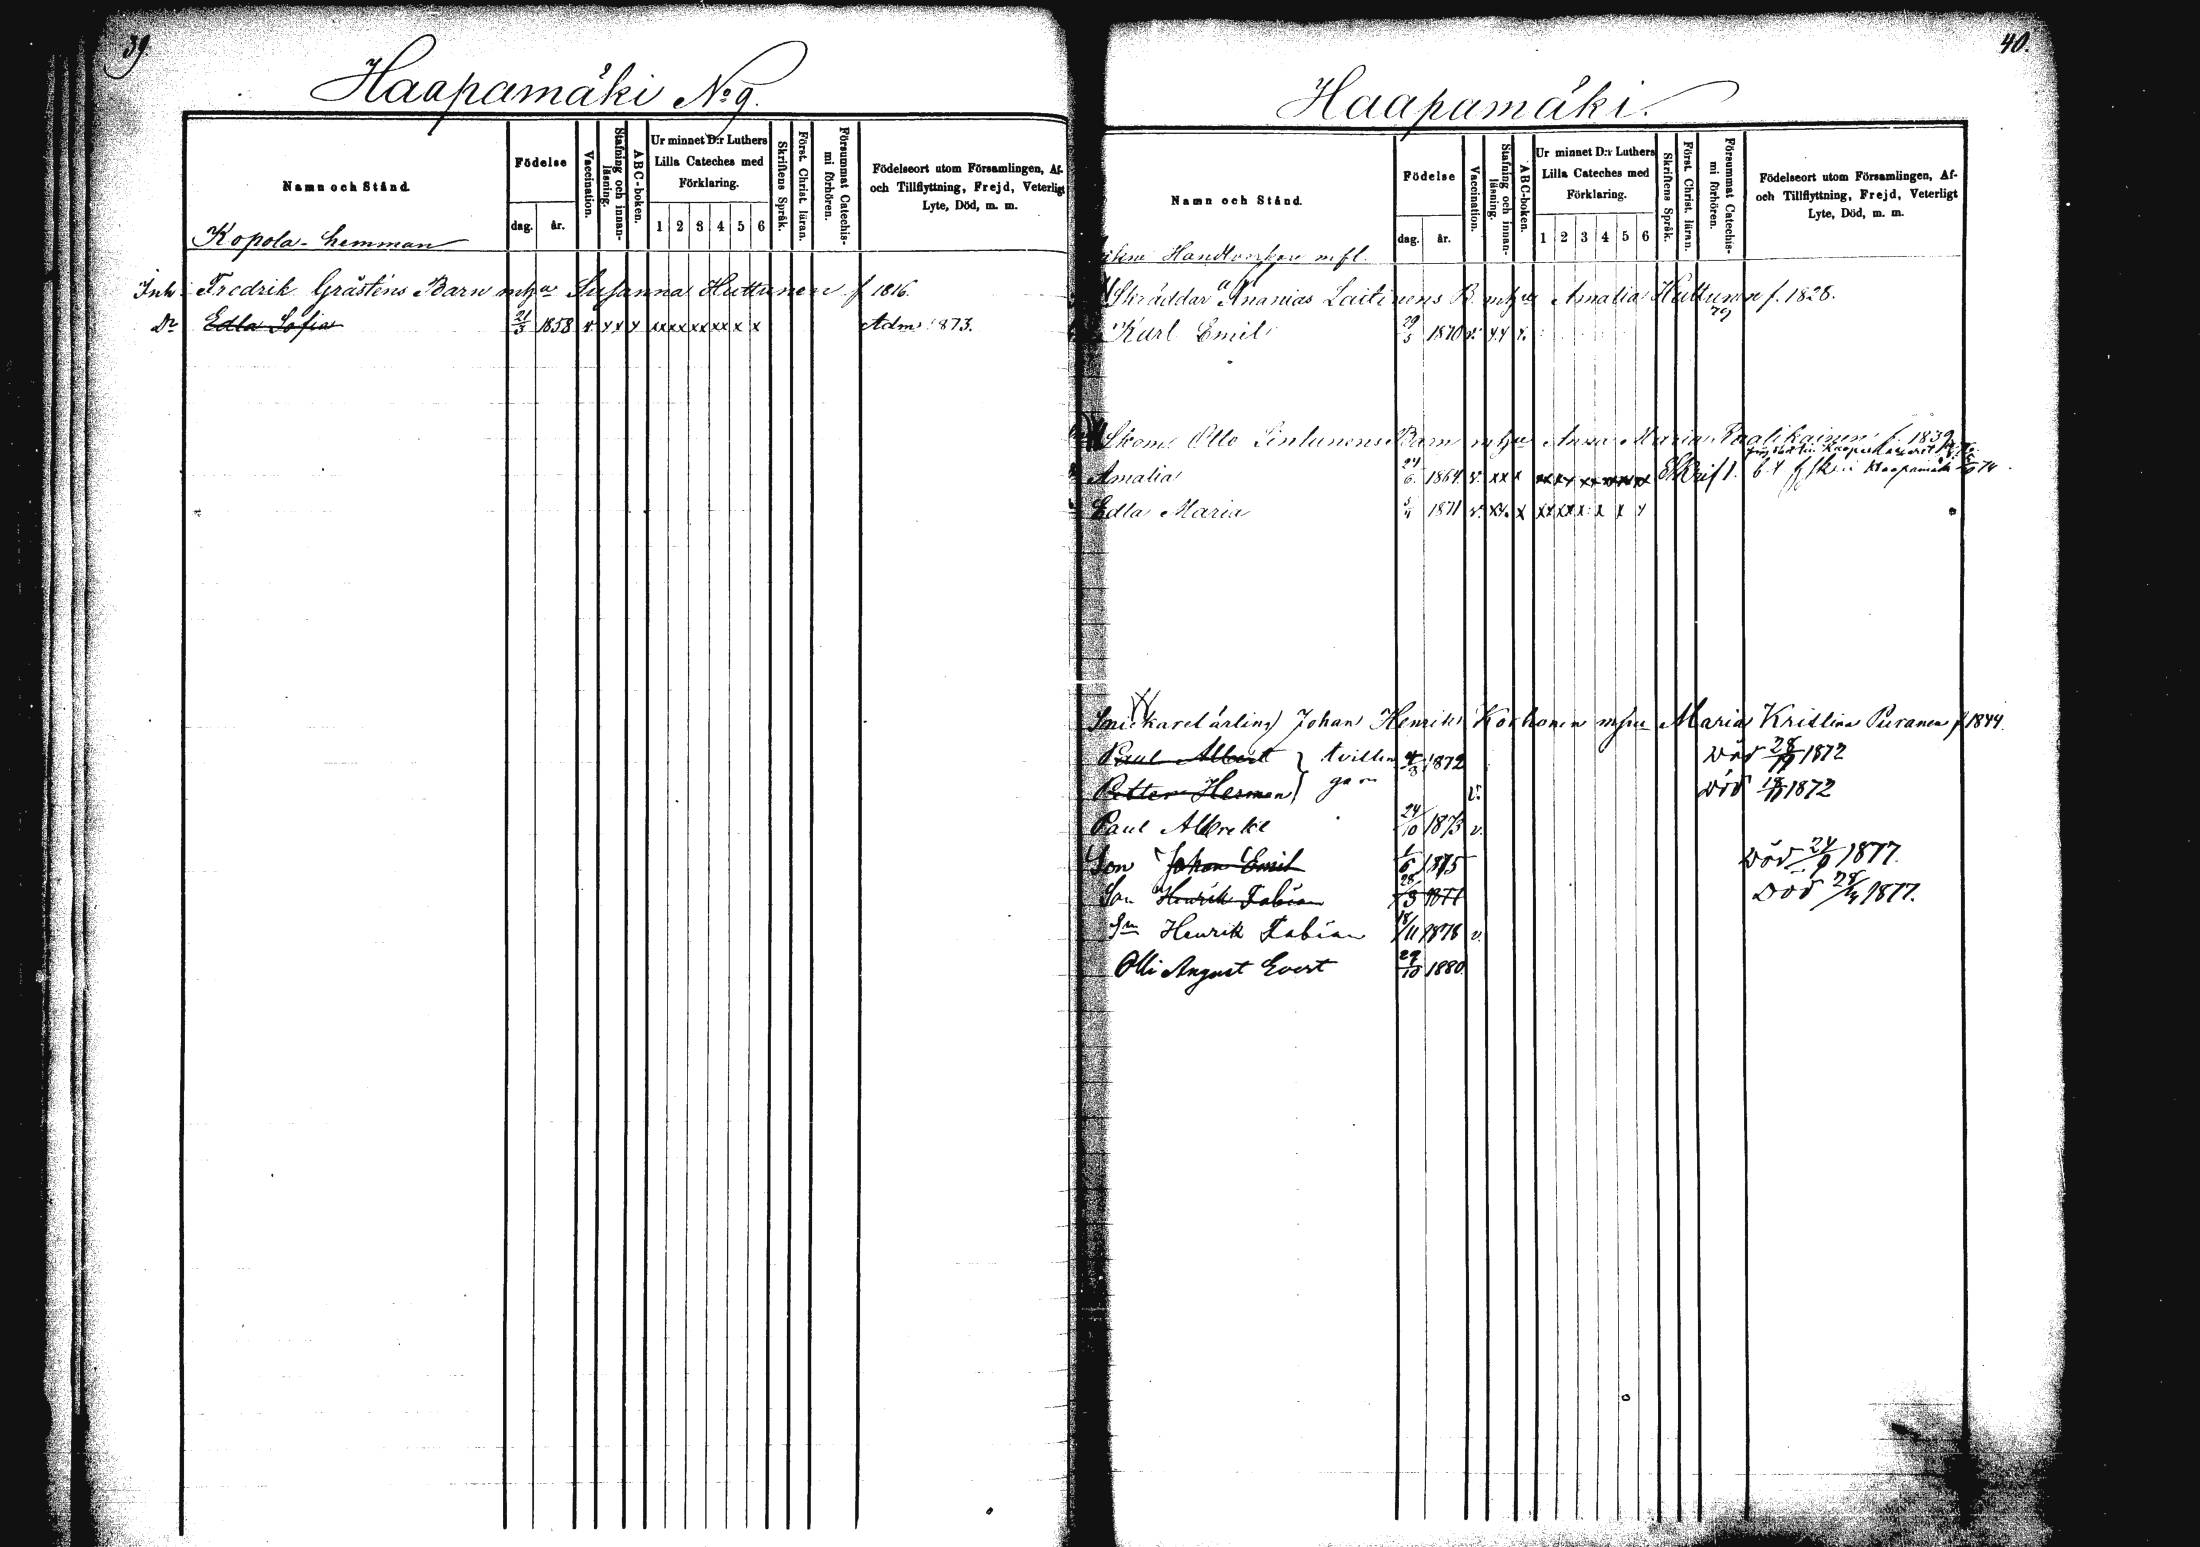 39
Haapamäki No 9.
Namn och Stånd.
Födelse
dag. år.
Vaccination.
Stafning och innanläsning.
ABC-boken.
Ur minnet D:r Luthers Lilla Cateches med Förklaring.
1 2 3 4 5 6
Skriftens Språk.
Först. Christ. läran.
Försummat Catechismi förhören.
Födelseort utom Församlingen, Af- och Tillflyttning, Frejd, Veterligt Lyte, Död, m. m.
Kopola-hemman
Inh. Fredrik Gråsténs Barn m hu Susanna Huttunen f 1816.
Dr Edla Sofia 21/3 1858 v x x x xx xx xx xx x x Adm 1873.
40.
Haapamäki.
Namn och Stånd.
Födelse
dag. år.
Vaccination.
Stafning och innanläsning.
ABC-boken.
Ur minnet D:r Luthers Lilla Cateches med Förklaring.
1 2 3 4 5 6
Skriftens Språk.
Först. Christ. läran.
Försummat Catechismi förhören.
Födelseort utom Församlingen, Af- och Tillflyttning, Frejd, Veterligt Lyte, Död, m. m.
Handtverkare m fl.
Skräddar Ananias Laitinens B. m hu Amalia Huttunen f. 1828.
79
Karl Emil 29/3 1870 v. x x x.
Skom. Otto Sintunens Barn m hu Anna Maria f. 1839
Amalia 24/6 1864 v. xx x Skrift. Haapamäki
Edla Maria 1871 v. xx x xx xx x x x x
Snickarelärling Johan Henrik Korhonen m hu Maria Kristina Puranen f 1844.
Paul Albert } tvillin 4/3 1872 död 28/11 1872
Petter Herman } gar v. död 18/11 1872
Paul Albrekt 24/10 1873 v.
Son Johan Emil 1/6 1875 död 24/9 1877.
Son Henrik Fabian 28/3 1877 Död 1877.
Sn Henrik Fabian 18/11 1878 v.
Olli August Evert 29/10 1880